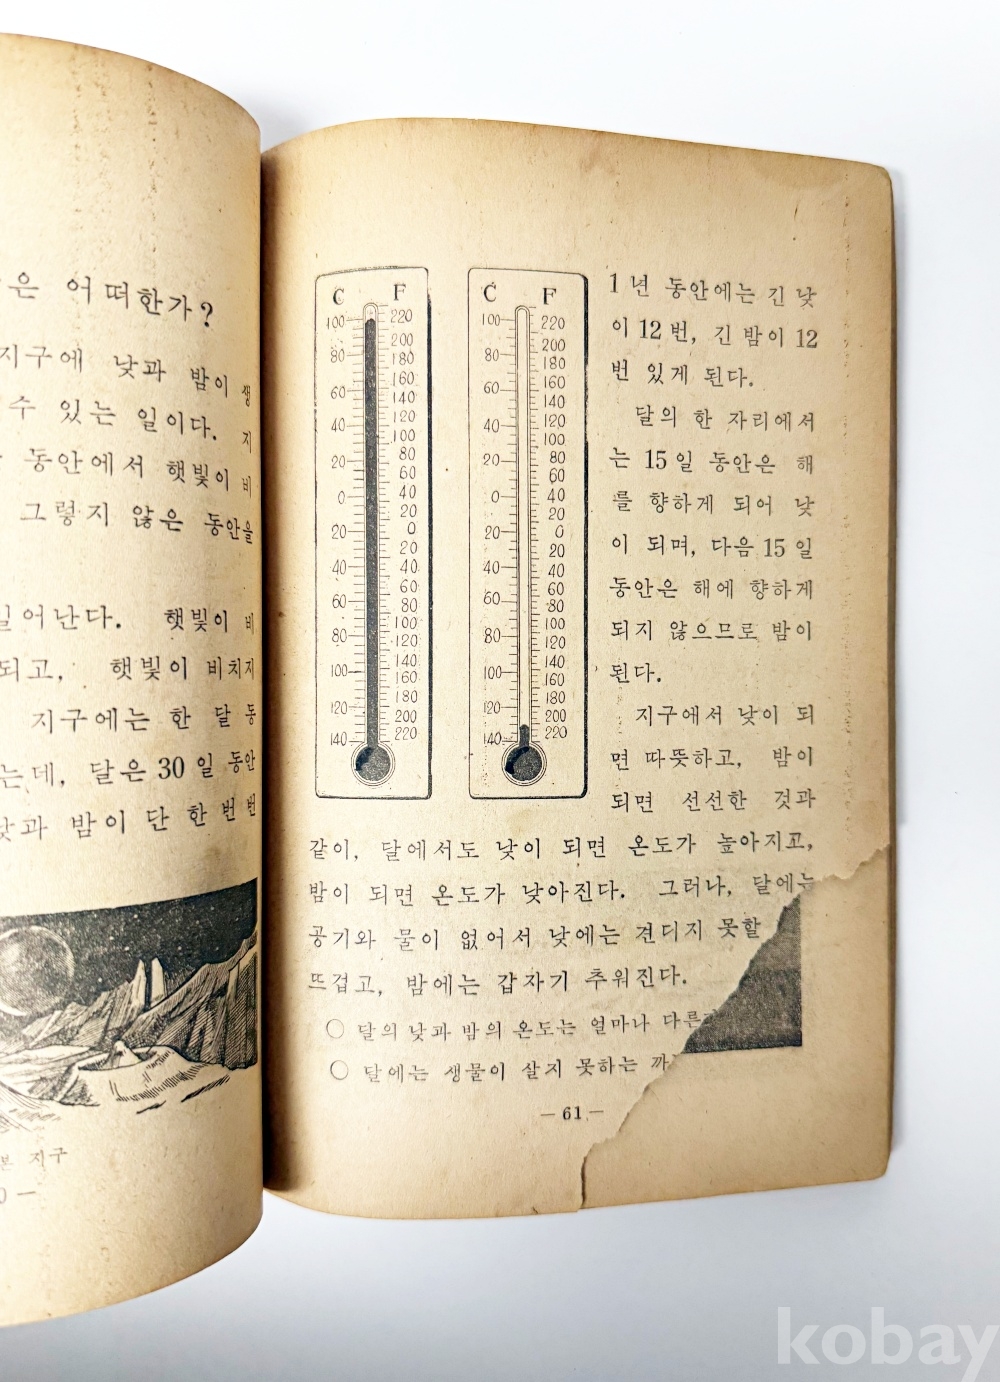 은 어떠한가?
지구에 낮과 밤이 생
수 있는 일이다. 지
동안에서 햇빛이 비
그렇지 않은 동안을
일어난다. 햇빛이 비
되고, 햇빛이 비치지
지구에는 한 달 동
는데, 달은 30일 동안
낮과 밤이 단 한 번 번
본 지구
0 —
C F
100 220
200
80 180
60 160
140
40 120
100
20 80
60
0 40
20
20 0
20
40 40
60 60
80
80 100
120
100 140
160
120 180
200
140 220
C F
100 220
200
80 180
60 160
140
40 120
100
20 80
60
0 40
20
20 0
20
40 40
60 60
80
80 100
120
100 140
160
120 180
200
140 220
1년 동안에는 긴 낮
이 12번, 긴 밤이 12
번 있게 된다.
달의 한 자리에서
는 15일 동안은 해
를 향하게 되어 낮
이 되며, 다음 15일
동안은 해에 향하게
되지 않으므로 밤이
된다.
지구에서 낮이 되
면 따뜻하고, 밤이
되면 선선한 것과
같이, 달에서도 낮이 되면 온도가 높아지고,
밤이 되면 온도가 낮아진다. 그러나, 달에는
공기와 물이 없어서 낮에는 견디지 못할
뜨겁고, 밤에는 갑자기 추워진다.
○ 달의 낮과 밤의 온도는 얼마나 다른
○ 달에는 생물이 살지 못하는 까
— 61 —
kobay